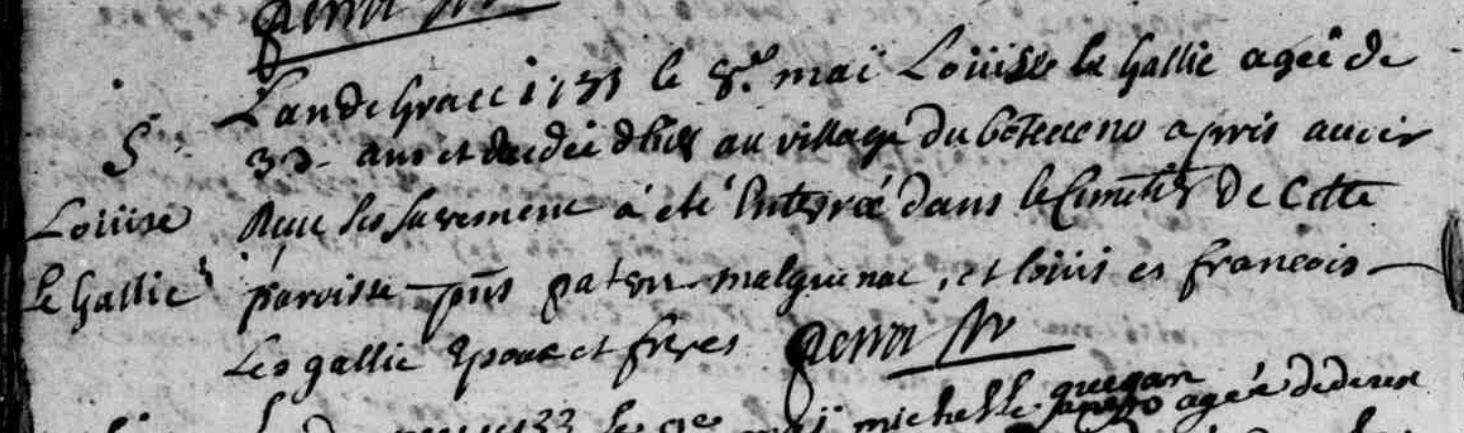 S.
Louise
le Gallic
L'an de Grace 1733 le 8.e mai Louise le Gallic agée de
33 ans et decedée d'hier au village du après avoir
Reçu les sacrement a été Enterrée dans le Cimetier De Cette
paroisse pñs malguenac, et louis es francois
Les gallic Epoux et freres
1733 le 9e mai michelle guegan agée de deux